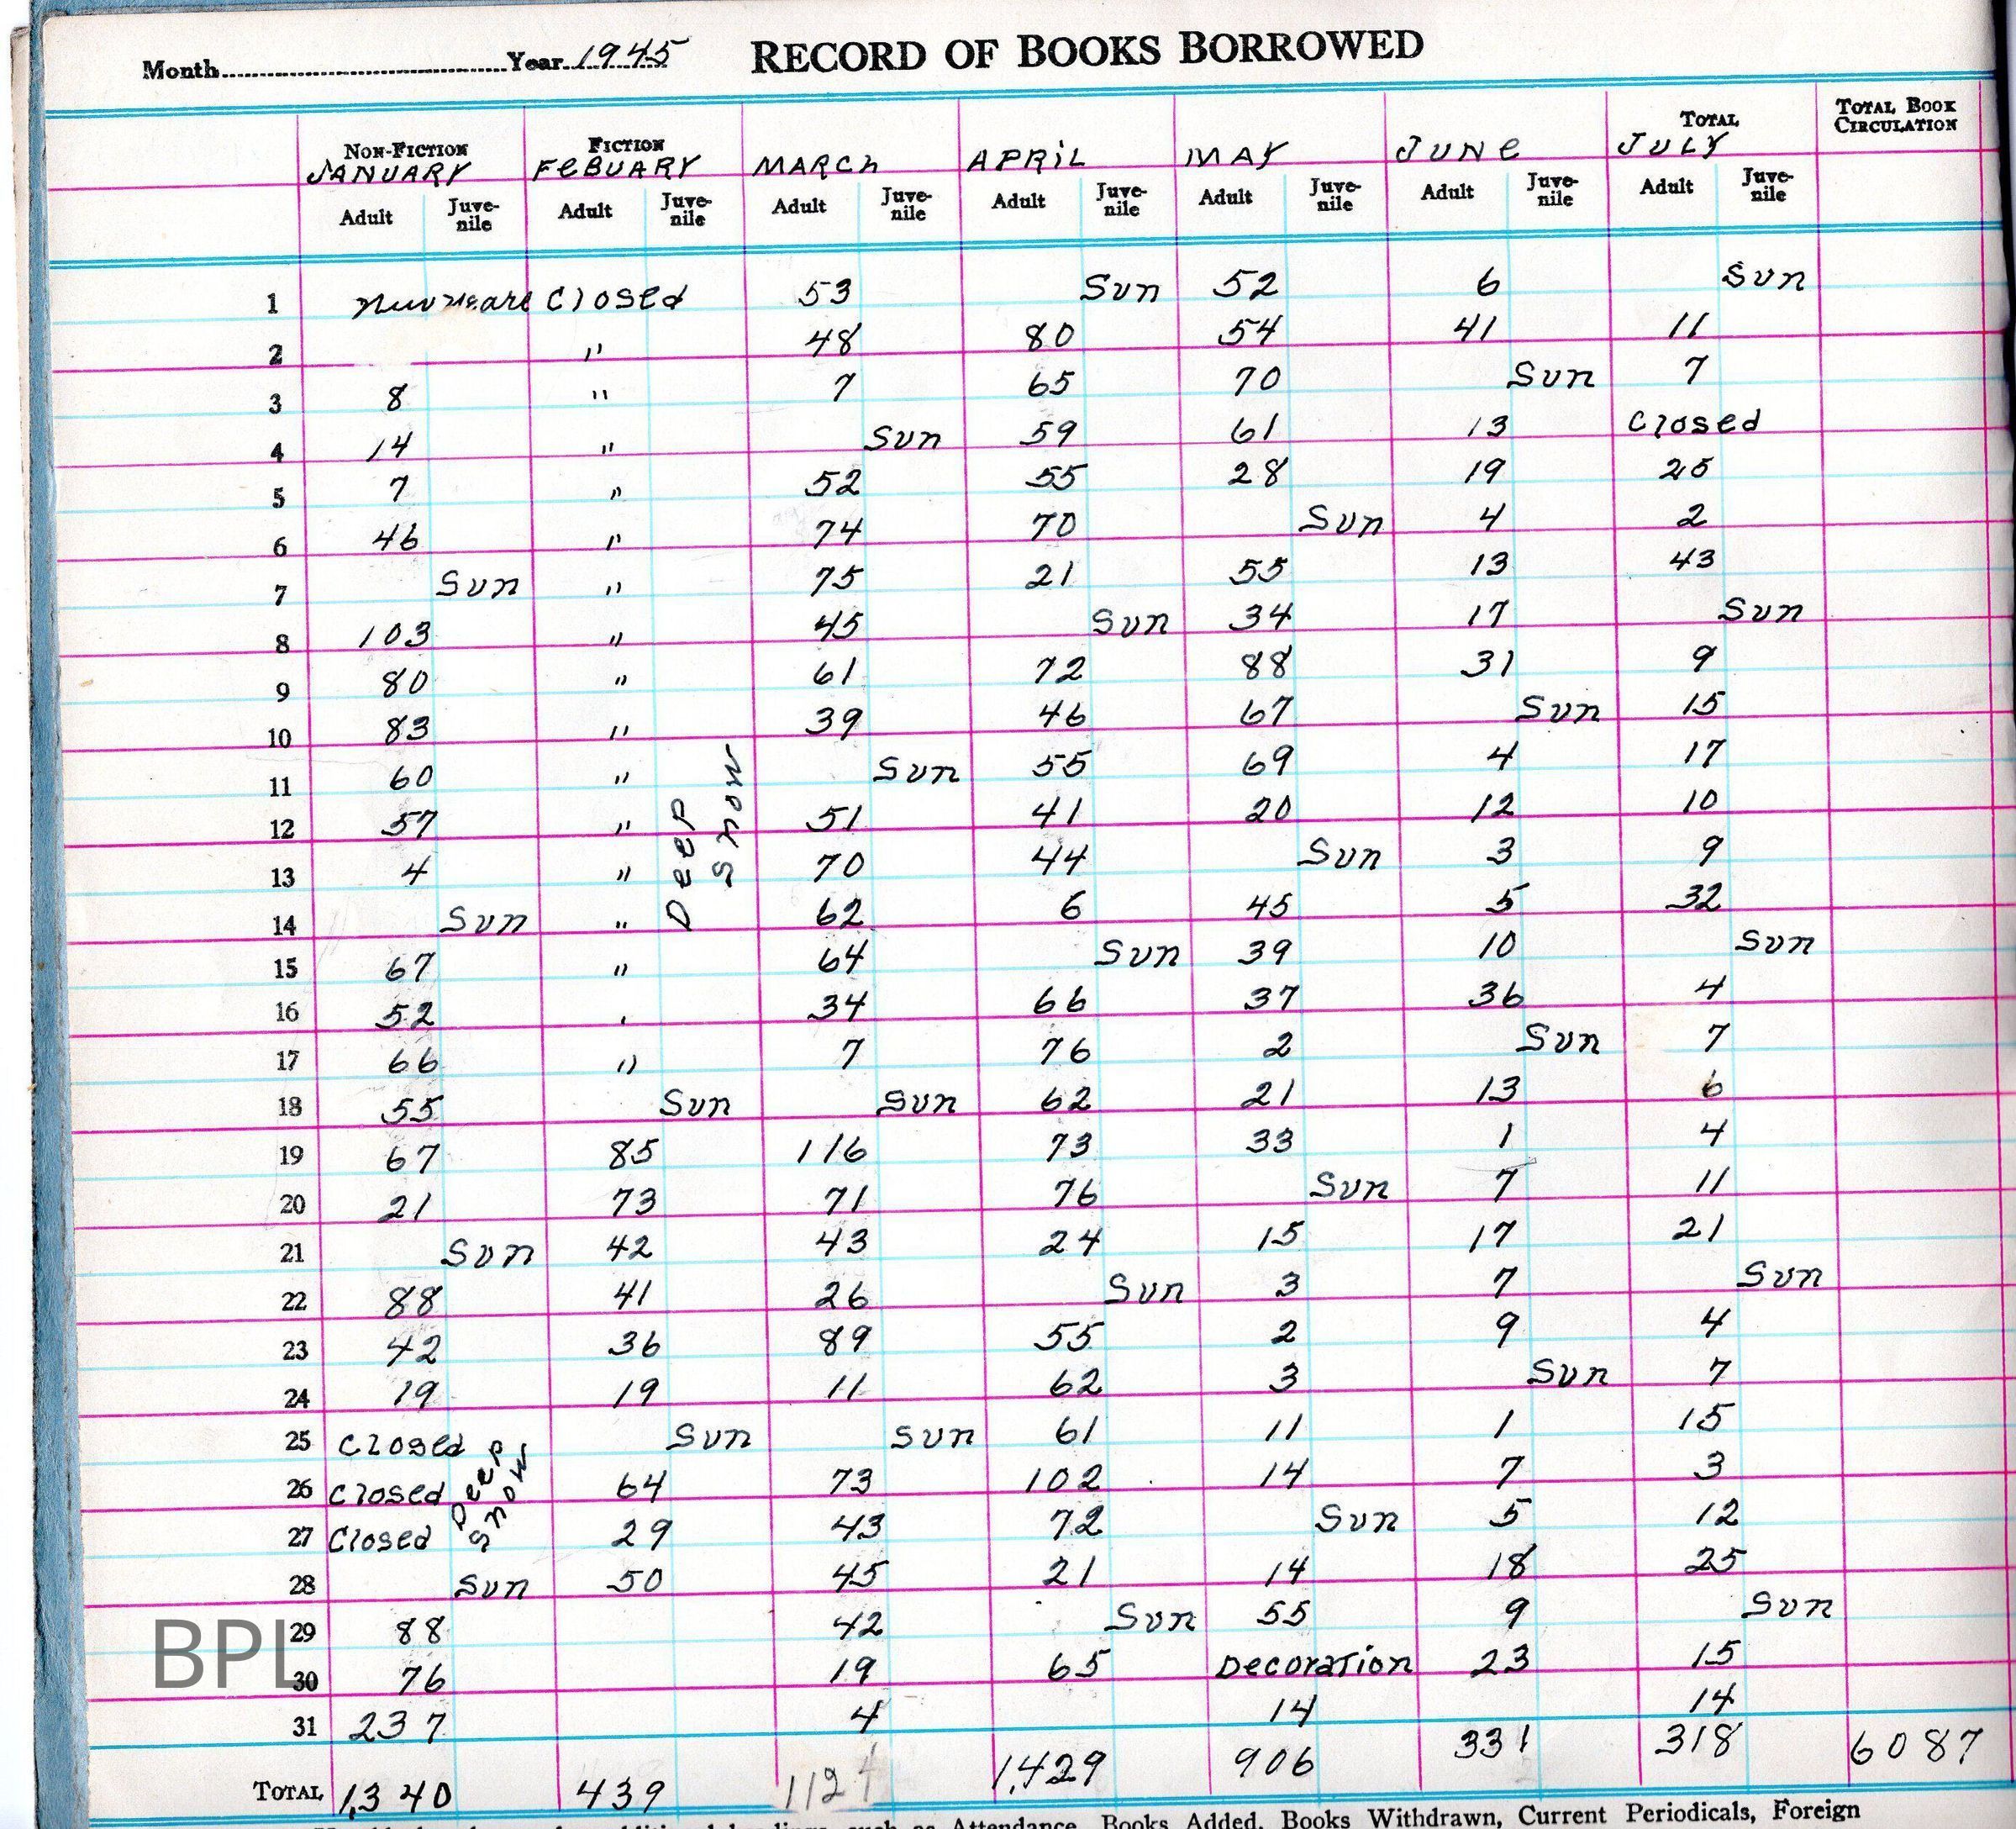 Month Year 1945 RECORD OF BOOKS BORROWED
NON-FICTION FICTION TOTAL TOTAL BOOK CIRCULATION
JANUARY FEBUARY MARCH APRIL MAY JUNE JULY
Adult Juve-nile Adult Juve-nile Adult Juve-nile Adult Juve-nile Adult Juve-nile Adult Juve-nile Adult Juve-nile
1 Closed 53 Sun 52 6 Sun
2 " 48 80 54 41 11
3 8 " 7 65 70 Sun 7
4 14 " Sun 59 61 13 Closed
5 7 " 52 55 28 19 25
6 46 " 74 70 Sun 4 2
7 Sun " 75 21 55 13 43
8 103 " 45 Sun 34 17 Sun
9 80 " 61 72 88 31 9
10 83 " 39 46 67 Sun 15
11 60 " Sun 55 69 4 17
12 57 " 51 41 20 12 10
13 4 " 70 44 Sun 3 9
14 Sun " 62 6 45 5 32
Deep Snow
15 67 " 64 Sun 39 10 Sun
16 52 ' 34 66 37 36 4
17 66 " 7 76 2 Sun 7
18 55 Sun Sun 62 21 13 6
19 67 85 116 73 33 1 4
20 21 73 71 76 Sun 7 11
21 Sun 42 43 24 15 17 21
22 88 41 26 Sun 3 7 Sun
23 42 36 89 55 2 9 4
24 19 19 11 62 3 Sun 7
25 Closed Sun Sun 61 11 1 15
26 Closed 64 73 102 14 7 3
27 Closed 29 43 72 Sun 5 12
Deep Snow
28 Sun 50 45 21 14 18 25
29 88 42 Sun 55 9 Sun
30 76 19 65 Decoration 23 15
31 237 4 14 14
TOTAL 1,340 439 1124 1,429 906 331 318 6087
additional headings, such as Attendance, Books Added, Books Withdrawn, Current Periodicals, Foreign
BPL